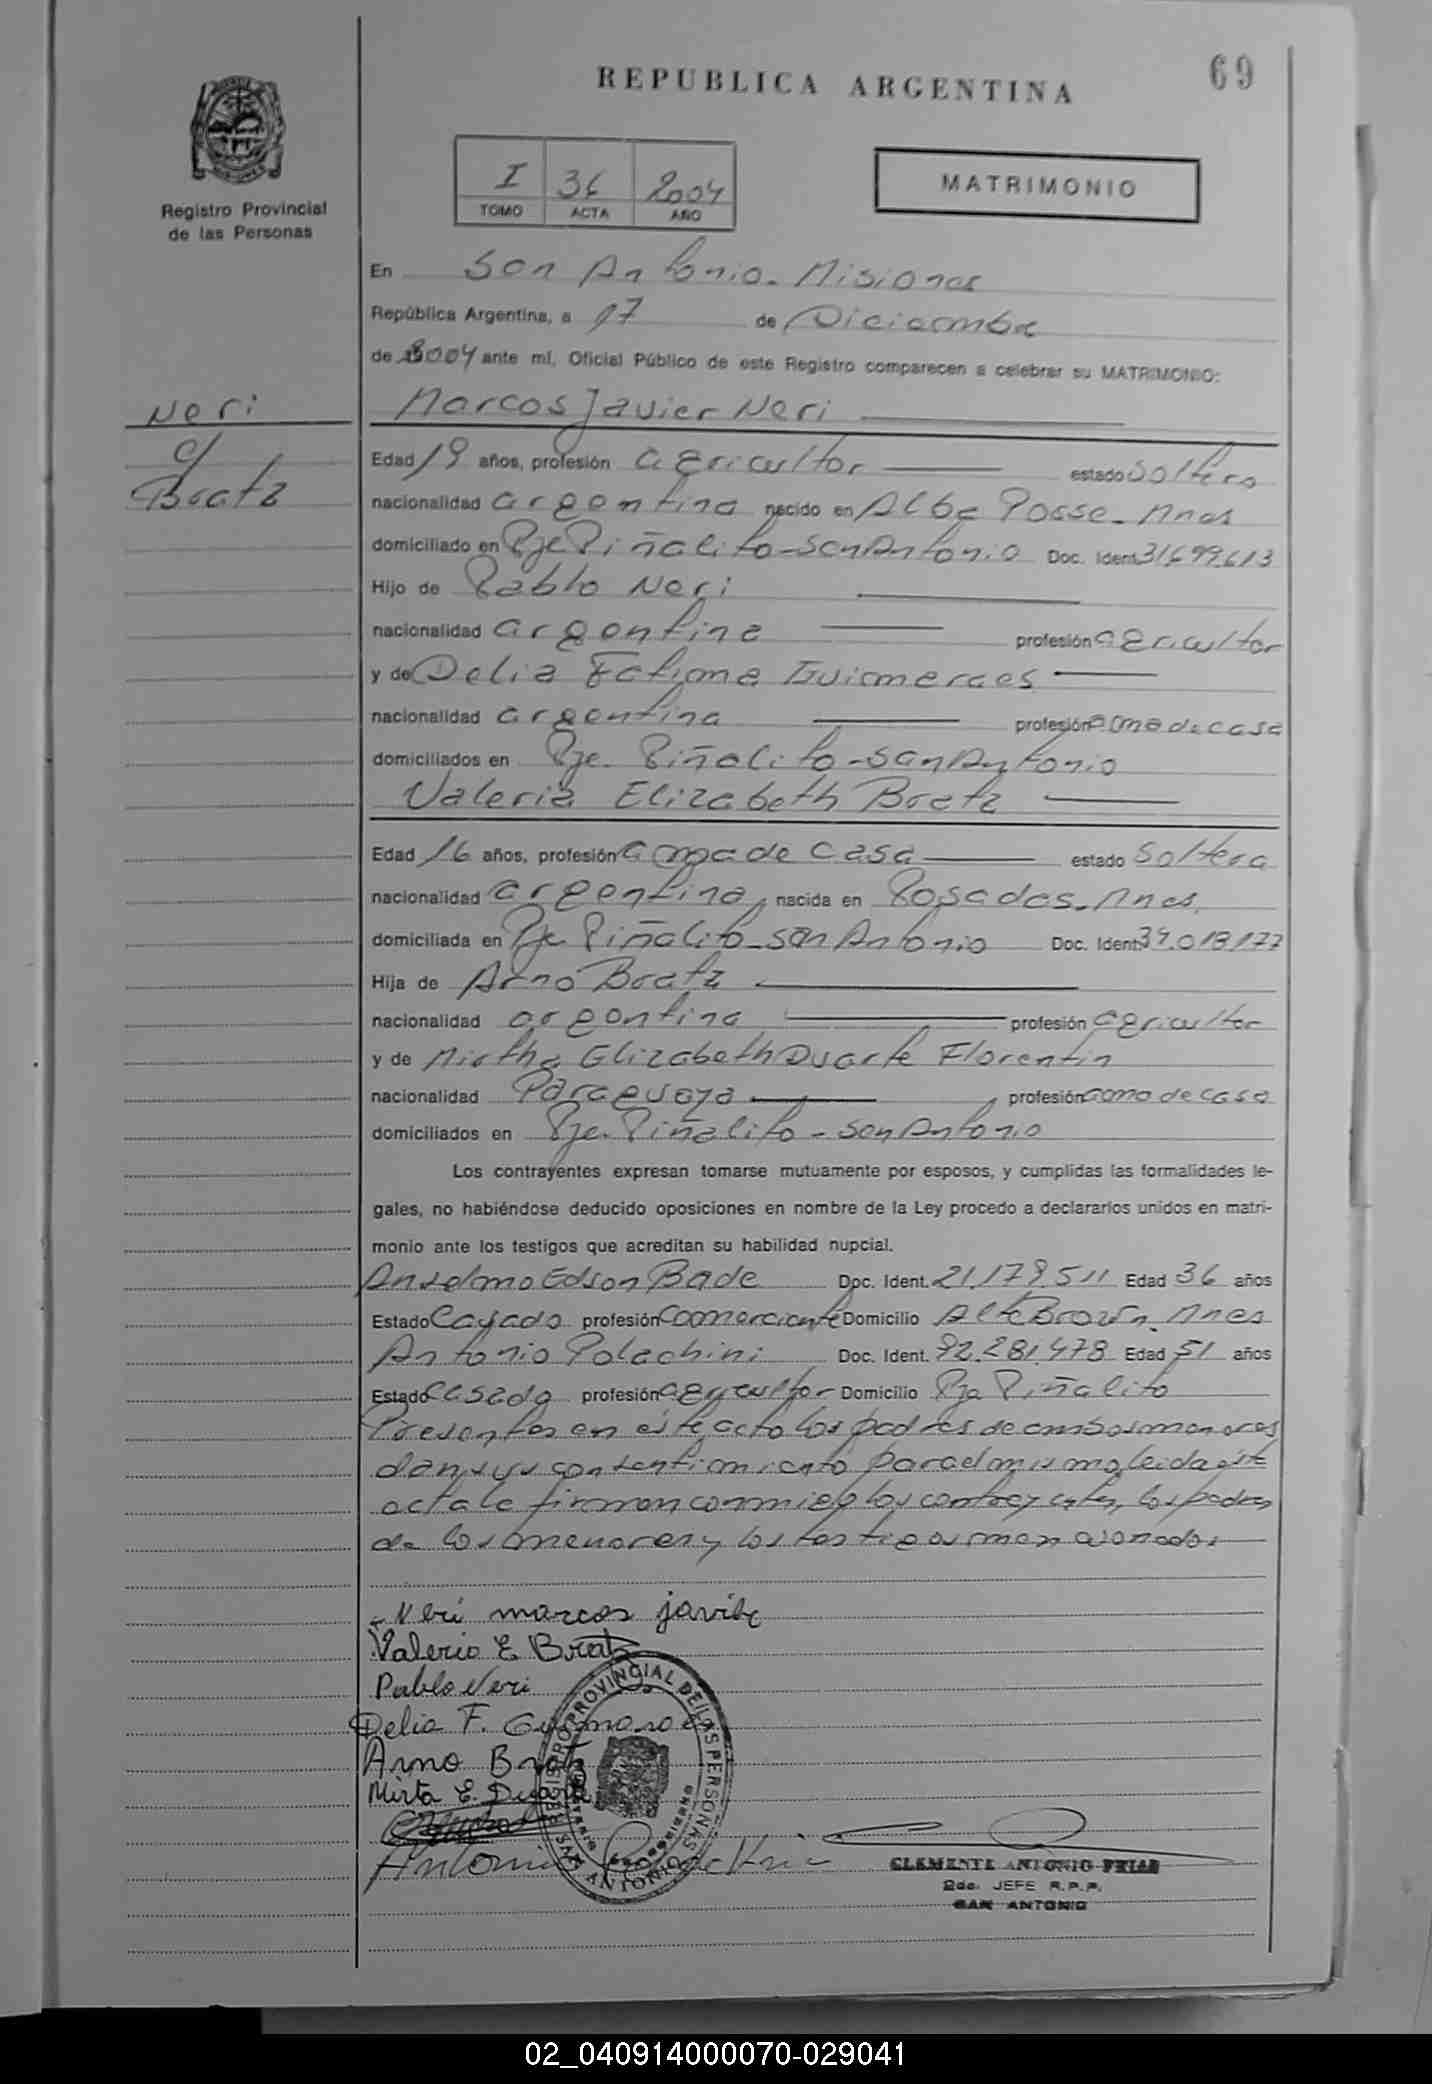 69
REPUBLICA ARGENTINA
I 36 2004
TOMO ACTA AÑO
MATRIMONIO
Registro Provincial
de las Personas
En San Antonio - Misiones
República Argentina, a 17 de Diciembre
de 2004 ante mí, Oficial Público de este Registro comparecen a celebrar su MATRIMONIO:
Neri
c/
Bratz
Marcos Javier Neri
Edad 19 años, profesión agricultor estado Soltero
nacionalidad argentina nacido en Alba Posse - Mnes
domiciliado en Pje Piñalito - San Antonio Doc. Ident. 31.699.613
Hijo de Pablo Neri
nacionalidad argentina profesión agricultor
y de Delia Fatima Guimeraes
nacionalidad argentina profesión ama de casa
domiciliados en Pje. Piñalito - San Antonio
Valeria Elizabeth Bratz
Edad 16 años, profesión ama de casa estado Soltera
nacionalidad argentina, nacida en Posadas - Mnes.
domiciliada en Pje Piñalito - San Antonio Doc. Ident. 34.018.177
Hija de Arno Bratz
nacionalidad argentina profesión agricultor
y de Mirtha Elizabeth Duarte Florentin
nacionalidad Paraguaya profesión ama de casa
domiciliados en Pje. Piñalito - San Antonio
Los contrayentes expresan tomarse mutuamente por esposos, y cumplidas las formalidades le-
gales, no habiéndose deducido oposiciones en nombre de la Ley procedo a declararlos unidos en matri-
monio ante los testigos que acreditan su habilidad nupcial.
Anselmo Edson Bade Doc. Ident. 21.179.511 Edad 36 años
Estado Casado profesión Comerciante Domicilio Alte Brown. Mnes
Antonio Polachini Doc. Ident. 92.281.478 Edad 51 años
Estado casado profesión agricultor Domicilio Pje Piñalito
Presentes en este acto los padres de ambos menores
dan sus consentimiento para el mismo, leida este
acta la firman conmigo los contrayentes, los padres
de los menores y los testigos mencionados
Neri marcos javier
Valeria E Bratz
Pablo Neri
Delia F. Guimaraes
Arno Bratz
Mirta E. Duarte
Antonio
REGISTRO PROVINCIAL DE LAS PERSONAS
SAN ANTONIO
CLEMENTE ANTONIO FRIAS
2do. JEFE R.P.P.
SAN ANTONIO
02_040914000070-029041